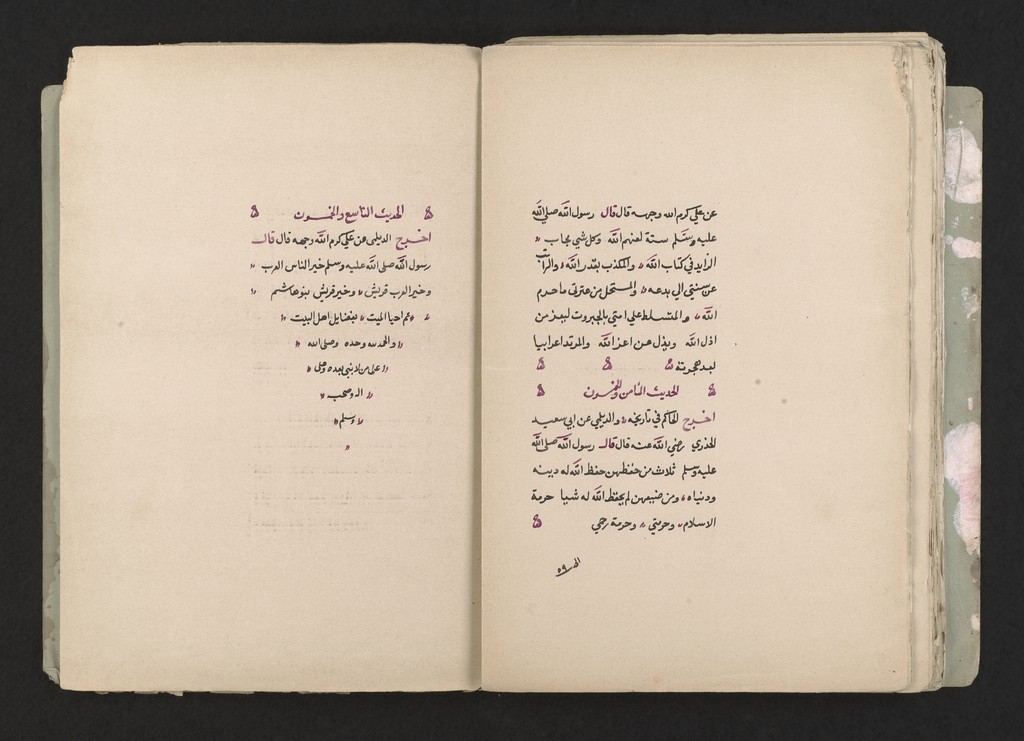 عن علي كرم الله وجهه قال قال رسول الله صلى الله
عليه وسلم ستة لعنهم الله وكل نبي مجاب
الزايد في كتاب الله والمكذب بقدر الله والراغب
عن سنتي الي بدعه والمستحل من عترتي ما حرم
الله والمتسلط علي امتي بالجبروت ليعز من
اذل الله ويذل من اعز الله والمرتد اعرابيا
بعد هجرته ه ه ه
ه الحديث الثامن والخمسون ه
اخرج الحاكم في تاريخه والديلمي عن ابي سعيد
الخدري رضي الله عنه قال قال رسول الله صلى الله
عليه وسلم ثلاث من حفظهن حفظ الله له دينه
ودنياه ومن ضيعهن لم يحفظ الله له شيا حرمة
الاسلام وحرمتي وحرمة رحمي ه
٥٩
ه الحديث التاسع والخمسون ه
اخرج الديلمي عن علي كرم الله وجهه قال قال
رسول الله صلى الله عليه وسلم خير الناس العرب
وخير العرب قريش وخير قريش بنو هاشم
تم احيا الميت بفضايل اهل البيت
والحمد لله وحده وصلى الله
على من لا نبي بعده وعلى
اله وصحبه
وسلم